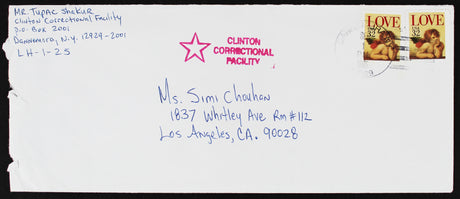 MR. Tupac Shakur
Clinton Correctional Facility
P.O. Box 2001
Dannemora, N.Y. 12929-2001
LH-1-25
CLINTON
CORRECTIONAL
FACILITY
LOVE
LOVE
32
32
Ms. Simi Chouhan
1837 Whitley Ave Rm #112
Los Angeles, CA. 90028